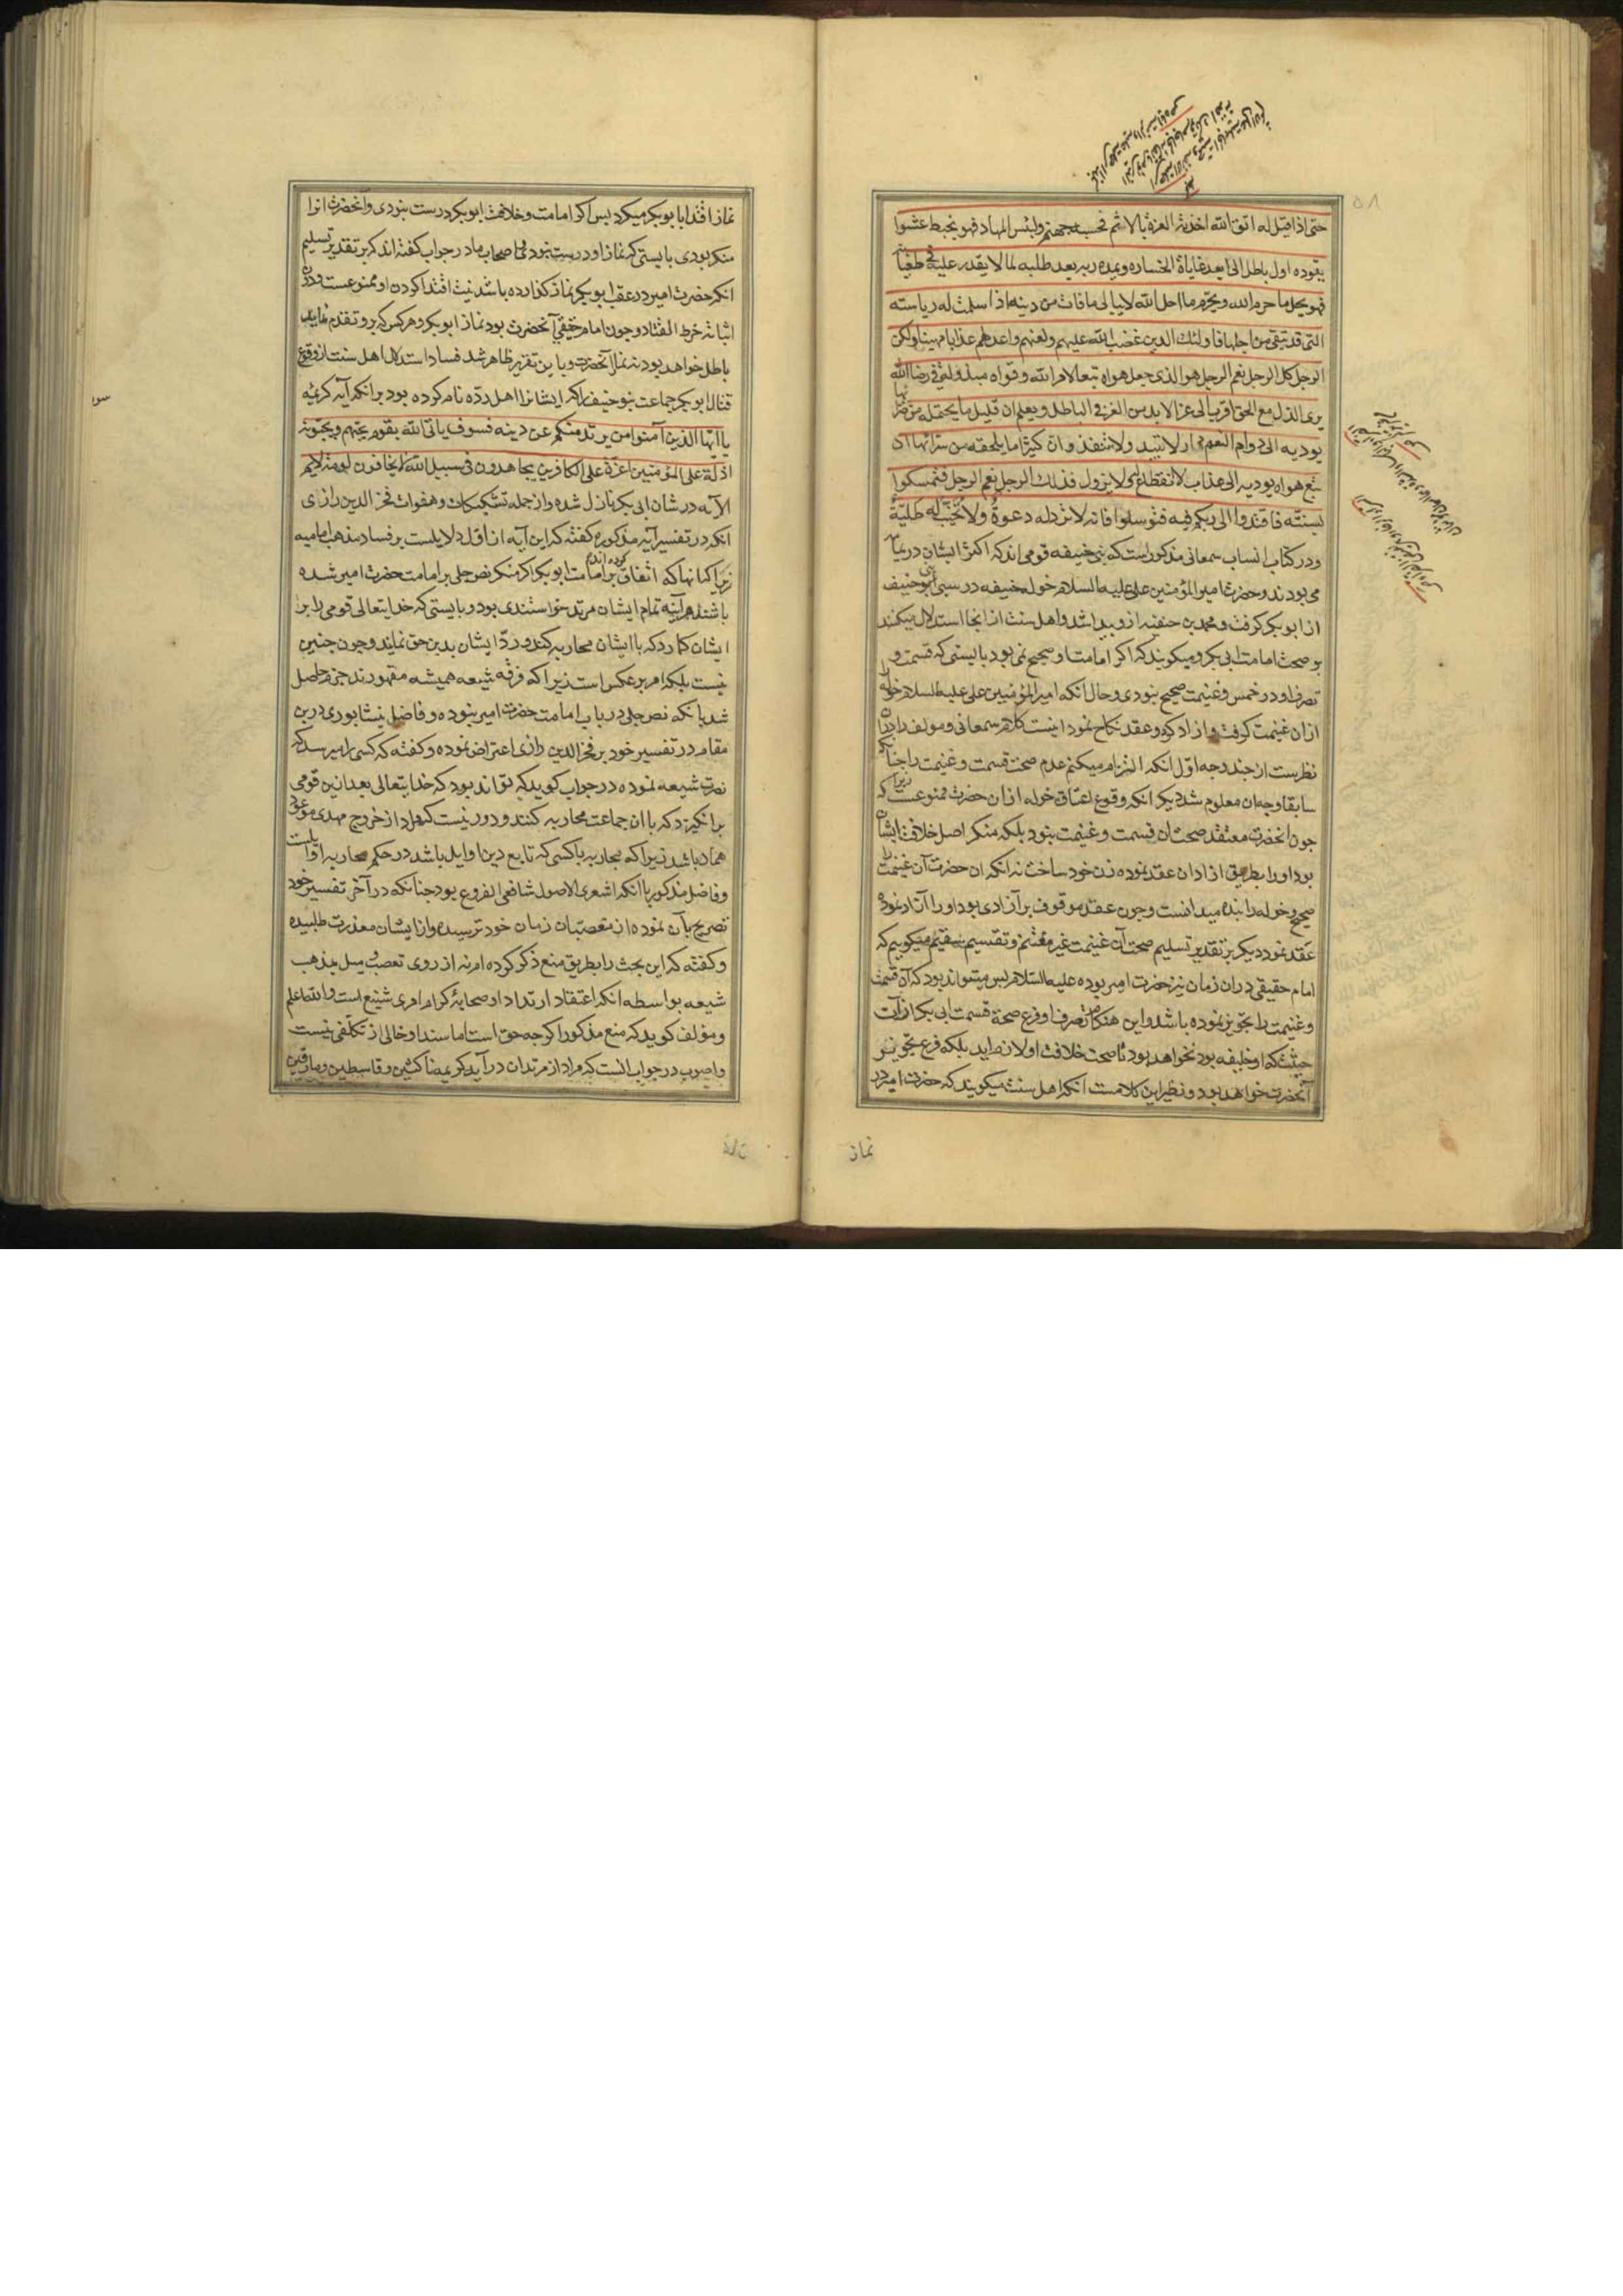 حتی اذا قیل له اتق الله اخذته العزة بالاثم فحسبه جهنم ولبئس المهاد فهو یخبط عشوا
یقوده اول باطل الی ابعد غایاة الخساره ویمده ربه بعد طلبه لما لا یقدر علیه فی طغیانه
فهو یحل ما حرم الله ویحرم ما احل الله لا یبالی ما فات من دینه اذا سلمت له ریاسته
التی قد یتقی من اجلها فاولئک الذین غضب الله علیهم ولعنهم واعد لهم عذابا مهینا ولکن
الرجل کل الرجل نعم الرجل هو الذی جعل هواه تبعا لامر الله وقواه مبذولة فی رضا الله
یری الذل مع الحق اقرب الی عز الابد من العز فی الباطل ویعلم ان قلیل ما یحتمله من ضرائها
یودیه الی دوام النعم فی دار لا تبید ولا تنفذ وان کثیرا ما یلحقه من سرائها ان
تبع هواه یودیه الی عذاب لا انقطاع له ولا یزول فذلک الرجل نعم الرجل فتمسکوا
بسنته فاقتدوا الی ربکم فیه فتوسلوا فانه لا ترد له دعوة ولا تخیب له طلبة
ودر کتاب انساب سمعانی مذکور است که بنی حنیفه قومی اند که اکثر ایشان در یمامه
می بودند وحضرت امیر المؤمنین علی علیه السلام خوله حنیفه در سبی بنی حنیف
از ابو بکر گرفت ومحمد بن حنفیه ازو پیدا شد واهل سنت از انجا استدلال میکنند
بر صحت امامت ابی بکر ومیکویند که اکر امامت او صحیح نمی بود بایستی که قسمت و
تصرف او در خمس وغنیمت صحیح نبودی وحال آنکه امیر المؤمنین علی علیه السلام خوله را
ازان غنیمت کرفت وازاد کرد وعقد نکاح نمود اینست کلام سمعانی ومولف را دران
نظرست از چند وجه اول انکه التزام میکنم عدم صحت قسمت وغنیمت را چنانکه
سابقا وجه ان معلوم شد دیکر انکه وقوع اعتاق خوله ازان حضرت ممنوعست زیرا که
چون انحضرت معتقد صحت ان قسمت وغنیمت نبود بلکه منکر اصل خلافت ایشان
بود او را بطریق ازادان عقد نموده زن خود ساخت نه انکه ان حضرت آن غنیمت را
صحیح وخوله را بنده میدانست وچون عقد موقوف بر آزادی بود او را آزاد نموده
عقد نمود دیکر بر تقدیر تسلیم صحت آن غنیمت غیر مغتنم وتقسیم سقیم میکوییم که
امام حقیقی دران زمان نیز حضرت امیر بوده علیه السلام پس میتواند بود که آن قسمت
وغنیمت را تجویز نموده باشد واین هنکام تصرف او فرع صحة قسمت ابی بکر از آن
حیثیت که او خلیفه بود نخواهد بود تا صحت خلافت او لازم اید بلکه فرع تجویز
آنحضرت خواهد بود ونظیر این کلامست انکه اهل سنت میکویند که حضرت امیر در
نماز
نماز اقتدا بابو بکر میکرد پس اکر امامت وخلافت ابو بکر درست نبودی وآنحضرت انرا
منکر بودی بایستی که نماز او درست نبودی واصحاب ما در جواب کفته اند که بر تقدیر تسلیم
انکه حضرت امیر در عقب ابو بکر نماز کذارده باشد نیت اقتدا کردن او ممنوعست ودون
اثباته خرط القتاد وچون امام حقیقی آنحضرت بود نماز ابو بکر وهر کس که برو تقدم نماید
باطل خواهد بود نه نماز آنحضرت وباین تقریر ظاهر شد فساد استدلال اهل سنت از وقوع
قتال ابو بکر جماعت بنو حنیف را که ایشانرا اهل رده نام کرده بود بر انکه آیه کریمه
یا ایها الذین آمنوا من یرتد منکم عن دینه فسوف یاتی الله بقوم یحبهم ویحبونه
اذلة علی المؤمنین اعزة علی الکافرین یجاهدون فی سبیل الله ولا یخافون لومة لایم
الآیه در شان ابی بکر نازل شده واز جمله تشکیکات وهفوات فخر الدین رازی
انکه در تفسیر آیه مذکوره کفته که این آیه از اقل دلایلست بر فساد مذهب امامیه
زیرا که انها که اتفاق بر امامت ابو بکر کرده اند اکر منکر نص جلی بر امامت حضرت امیر شده
باشند هر آینه تمام ایشان مرتد خواستندی بود وبایستی که خدایتعالی قومی را بر
ایشان کمارد که با ایشان محاربه کنند ورد ایشان بدین حق نمایند وچون چنین
نیست بلکه امر بر عکس است زیرا که فرقه شیعه همیشه مقهورند جزم حاصل
شد بانکه نص جلی در باب امامت حضرت امیر نبوده وفاضل نیشابوری درین
مقام در تفسیر خود بر فخر الدین رازی اعتراض نموده وکفته که کسی را میرسد که
نصرت شیعه نموده در جواب کوید که تواند بود که خدایتعالی بعد ازین قومی
بر انکیزد که با ان جماعت محاربه کنند ودور نیست که مراد از خروج مهدی موعود
همان باشد زیرا که محاربه با کسی که تابع دین اوایل باشد در حکم محاربه اوایلست
وفاضل مذکور با انکه اشعری الاصول شافعی الفروع بود چنانکه در آخر تفسیر خود
تصریح بآن نموده از متعصبان زمان خود ترسیده واز ایشان معذرت طلبیده
وکفته که این بحث را بطریق منع ذکر کرده ام نه از روی تعصب ومیل بمذهب
شیعه بواسطه انکه اعتقاد ارتداد او صحابه کرام امری شنیع است والله اعلم
ومؤلف کوید که منع مذکور اکرچه حق است اما سند او خالی از تکلفی نیست
واصوب در جواب انست که مراد از مرتدان در آیه کریمه ناکثین وقاسطین ومارقین